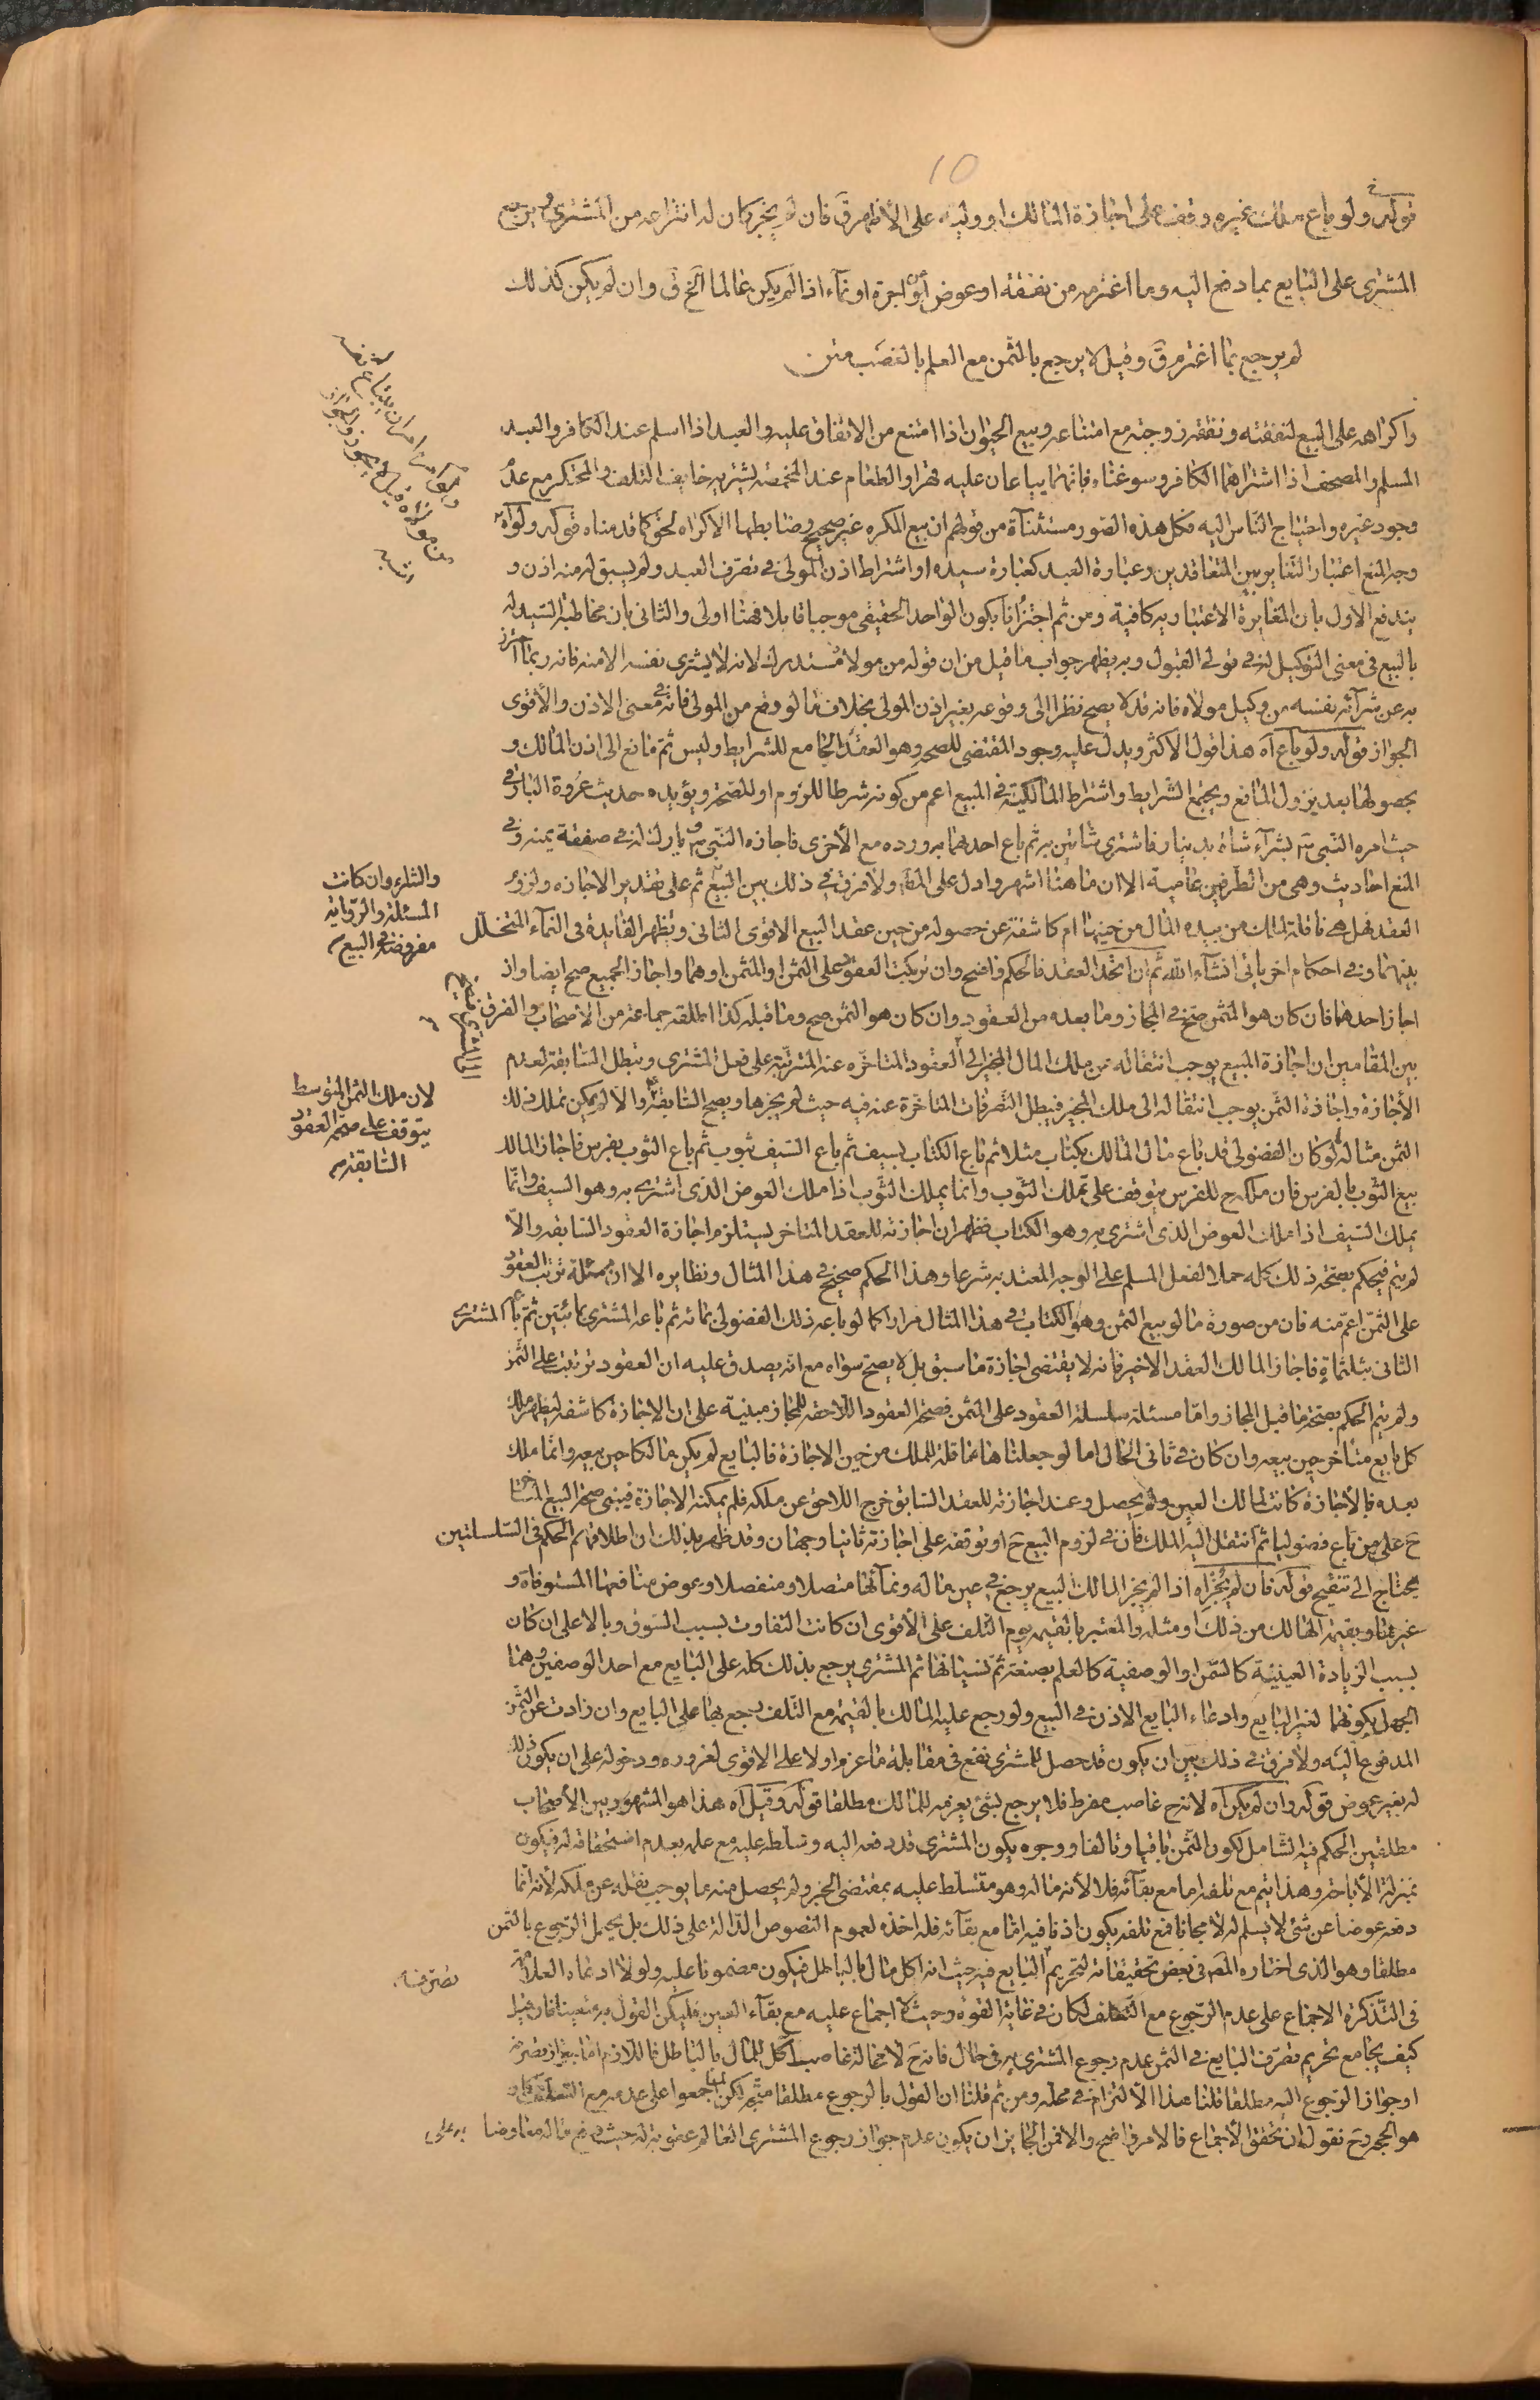 10
قوله ولو باع ملك غيره وقف على اجازة المالك او وليه على الأظهر ق فان لم يجز كان له انتزاعه من المشترى ويرجع
المشترى على البايع بما دفع اليه وما اغترمه من نفقة او عوض عن اجرة او نمآء اذا لم يكن عالما الخ ق وان لم يكن كذلك
لم يرجع بما اغترم ق وقيل لا يرجع بالثمن مع العلم بالغصب متن
واكراهه على البيع لنفقته ونفقة زوجته مع امتناعه وبيع الحيوان اذا امتنع من الانفاق عليه والعبد اذا اسلم عند الكافر والعبد
المسلم والمصحف اذا اشتراهما الكافر وسوغناه فانهما يباعان عليه قهرا والطعام عند المخمصة يشتريه خايف التلف والمحتكر مع عدم
وجود غيره واحتياج الناس اليه فكل هذه الصور مستثناة من قولهم ان بيع المكره غير صحيح وضابطها الاكراه بحق كما قدمناه قوله ولو اه
وجه المنع اعتبار التغاير بين المتعاقدين وعبارة العبد كعبارة سيده او اشتراط اذن المولى فى تصرف العبد ولم يسبق له منه اذن و
يندفع الاول بان المغايرة الاعتباريه كافية ومن ثم اجتزانا بكون الواحد الحقيقى موجبا قابلا فهنا اولى والثانى بان مخاطبة السيد له
بالبيع فى معنى التوكيل له فى تولى القبول وبه يظهر جواب ما قيل من ان قوله من مولاه مستدرك لانه لا يشترى نفسه الا منه فانه ربما احترز
به عن شرآئه نفسه من وكيل مولاه فانه قد لا يصح نظرا الى وقوعه بغير اذن المولى بخلاف ما لو وقع من المولى فانه فى معنى الاذن والأقوى
الجواز قوله ولو باع آه هذا قول الاكثر ويدل عليه وجود المقتضى للصحه وهو العقد الجامع للشرايط وليس ثم مانع الى اذن المالك و
بحصولها بعد يزول المانع ويجتمع الشرايط واشتراط المالكية فى المبيع اعم من كونه شرطا للزوم او للصحة ويؤيده حديث عروة البارقى
حيث امره النبى ص بشرآء شاة بدينار فاشترى شاتين به ثم باع احدهما به ورده مع الأخرى فاجازه النبى ص وبارك له فى صفقة يمنه وفى
المنع احاديث وهى من الطرفين عامية الا ان ما هنا اشهر وادل على المط ولا فرق فى ذلك بين المبيع ثم على تقدير الاجازه ولزوم
العقد فهل هى ناقلة للملك من بيده المال من حينها ام كاشفة عن حصوله من حين عقد البيع الاقوى الثانى ويظهر الفايدة فى النمآء المتخلل
بينهما وفى احكام اخر ياتى انشآء الله ثم ان اتحد العقد فالحكم واضح وان ترتبت العقود على الثمن او المثمن او هما واجاز الجميع صح ايضا وان
اجاز احدهما فان كان هو المثمن صح فى المجاز وما بعده من العقود وان كان هو الثمن صح وما قبله كذا اطلقه جماعة من الأصحاب والفرق
بين المقامين ان اجازة المبيع يوجب انتقاله من ملك المال المجيز الى العقود المتاخره عنه المترتبة على فعل المشترى وتبطل السابقة لعدم
الأجازة واجازة الثمن يوجب انتقاله الى ملك المجيز فيبطل التصرفات المتاخرة عنه فيه حيث لم يجزها ويصح السابقة والا لم يمكن تملك ذلك
الثمن مثاله لو كان الفضولى قد باع مال المالك بكتاب مثلا ثم باع الكتاب بسيف ثم باع السيف بثوب ثم باع الثوب بفرس فاجاز المالك
بيع الثوب بالفرس فان ملكه ح للفرس يتوقف على تملك الثوب وانما يملك الثوب اذا ملك العوض الذى اشترى به وهو السيف وانما
يملك السيف اذا ملك العوض الذى اشترى به وهو الكتاب فظهر ان اجازته للعقد المتاخر يستلزم اجازة العقود السابقه والا
لم يتم فيحكم بصحة ذلك كله حملا لفعل المسلم على الوجه المعتد به شرعا وهذا الحكم صحيح فى هذا المثال ونظايره الا ان مسئلة ترتب العقود
على الثمن اعم منه فان من صوره ما لو بيع الثمن وهو الكتاب فى هذا المثال مرارا كما لو باعه ذلك الفضولى بمائة ثم باعه المشترى بمائتين ثم باع المشترى
الثانى بثلثمائة فاجاز المالك العقد الاخير فانه لا يقتضى اجازة ما سبق بل لا يصح سواه مع انه يصدق عليه ان العقود ترتبت على الثمن
ولم يتم الحكم بصحة ما قبل المجاز واما مسئلة سلسلة العقود على المثمن فصحة العقود اللاحقه للمجاز مبنية على ان الاجازة كاشفه ليظهر ملك
كل بايع متاخر حين بيعه وان كان فى ثانى الحال اما لو جعلناها ناقلة للملك من حين الاجازة فالبايع لم يكن مالكا حين بيعه وانما ملك
بعده فالأجازة كانت لمالك العين ولم يحصل وعند اجازته للعقد السابق خرج اللاحق عن ملكه فلم يمكنه الاجازة فيبنى صحة البيع المتاخر
ح على من باع فضوليا ثم انتقل اليه الملك فان فى لزوم البيع ح او توقفه على اجازته ثانيا وجهان وقد ظهر بذلك ان اطلاقهم الحكم فى السلسلتين
يحتاج الى تنقيح قوله فان لم يجز اه اذا لم يجز المالك البيع يرجع فى عين ماله ونمآئها متصلا ومنفصلا وعوض منافعها المستوفاة و
غيرها وبقيمة الهالك من ذلك او مثله والمعتبر بالقيمه يوم التلف على الأقوى ان كانت التفاوت بسبب السوق وبالاعلى ان كان
بسبب الزيادة العينية كالسمن او الوصفية كالعلم بصنعة ثم نسيانها ثم المشترى يرجع بذلك كله على البايع مع احد الوصفين وهما
الجهل بكونها لغير البايع وادعاء البايع الاذن فى البيع ولو رجع عليه المالك بالقيمة مع التلف رجع بها على البايع وان زادت عن الثمن
المدفوع اليه ولا فرق فى ذلك بين ان يكون قد حصل للمشترى نفع فى مقابلة ما غرم او لا على الاقوى لغروره ودخوله على ان يكون ذلك
له بغير عوض قوله وان لم يكن آه لانه ح غاصب مفرط فلا يرجع بشئ يغرمه للمالك مطلقا قوله وقيل آه هذا هو المشهور بين الأصحاب
مطلقين الحكم فيه الشامل لكون الثمن باقيا وتالفا ووجهه يكون المشترى قد دفعه اليه وسلطه عليه مع علمه بعدم استحقاقه له فيكون
بمنزلة الأباحة وهذا يتم مع تلفه اما مع بقآئه فلا لأنه ماله وهو متسلط عليه بمقتضى الخبر ولم يحصل منه ما يوجب نقله عن ملكه لأنه انما
دفعه عوضا عن شئ لا يسلم له لا مجانا فمع تلفه يكون اذنا فيه اما مع بقآئه فله اخذه لعموم النصوص الدالة على ذلك بل يحتمل الرجوع بالثمن
مطلقا وهو الذى اختاره المص فى بعض تحقيقاته لتحريم تصرف البايع فيه حيث انه اكل مال بالباطل فيكون مضمونا عليه ولولا ادعاء العلامة
فى التذكرة الاجماع على عدم الرجوع مع التلف لكان فى غاية القوة وحيث لا اجماع عليه مع بقآء العين فليكن القول به متعينا فان قيل
كيف يجامع تحريم تصرف البايع فى الثمن عدم رجوع المشترى به فى حال فانه ح لا محالة غاصب اكل للمال بالباطل فاللازم اما جواز تصرفه
او جواز الرجوع اليه مطلقا قلنا هذا الالتزام فى محله ومن ثم قلنا ان القول بالرجوع مطلقا متجه لكن لما اجمعوا على عدمه مع التلف كان
هو الحجه وح نقول ان تحقق الأجماع فالامر واضح والا فمن الجايز ان يكون عدم جواز رجوع المشترى العالم عقوبة له حيث دفع ماله معاوضا به على
والشراء وان كانت
المسئلة والرواية
مفروضة فى البيع
لان ملك الثمن المتوسط
يتوقف على صحة العقود
السابقة